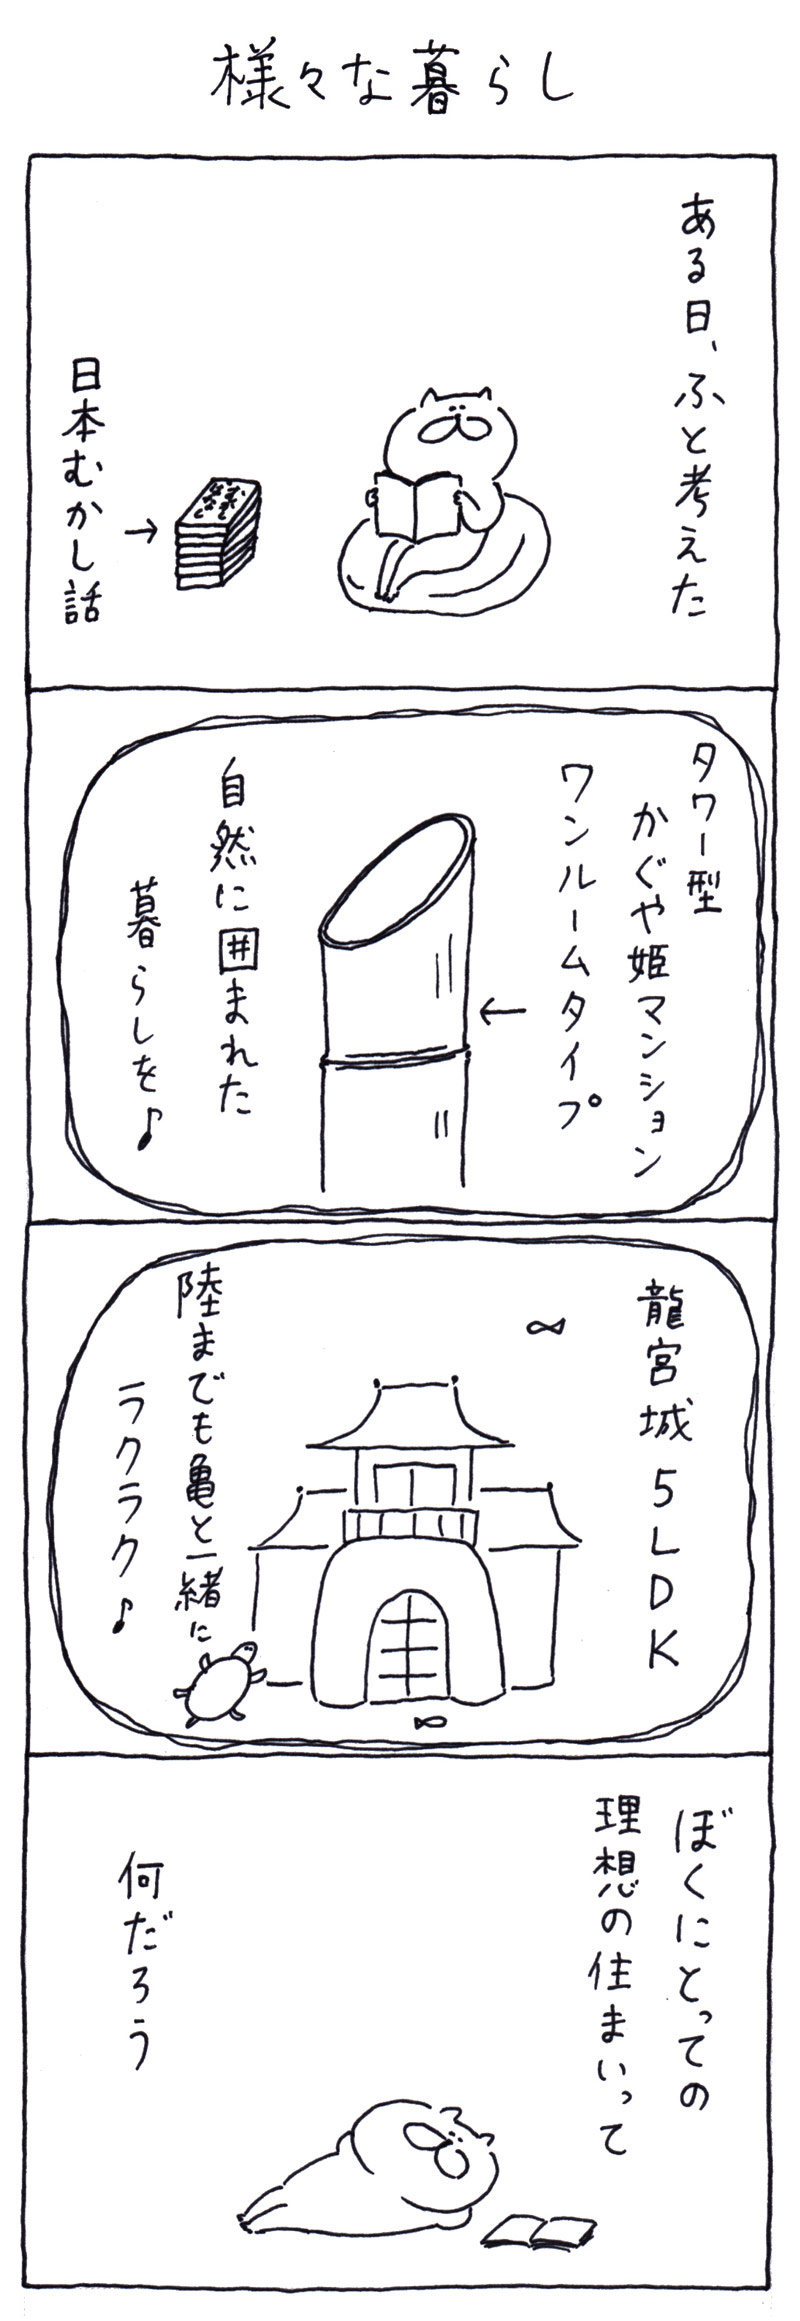 様々な暮らし
ある日、ふと考えた
日本むかし話
→
タワー型
かぐや姫マンション
ワンルームタイプ
←
自然に囲まれた
暮らしを♪
龍宮城 5LDK
陸までも亀と一緒に
ラクラク♪
ぼくにとっての
理想の住まいって
何だろう